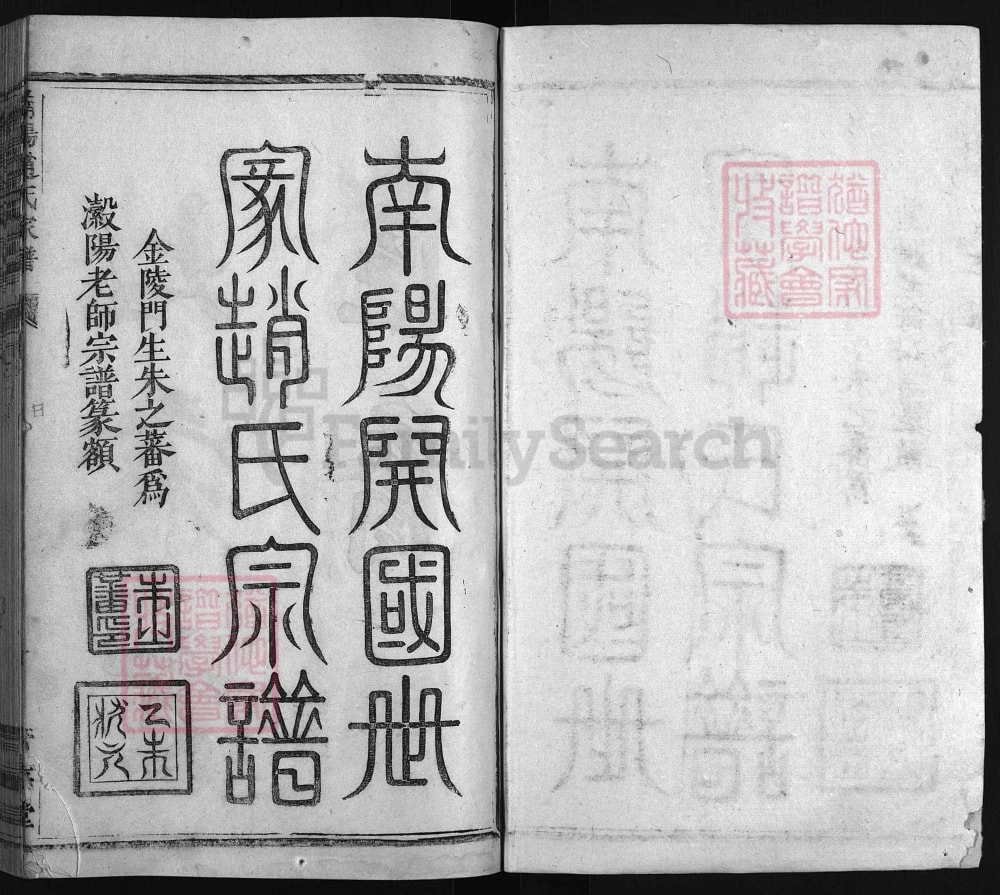 南陽開國世
家趙氏宗譜
金陵門生朱之蕃爲
瀫陽老師宗譜篆額
朱之蕃印
乙未狀元
譜學會
收藏
FamilySearch